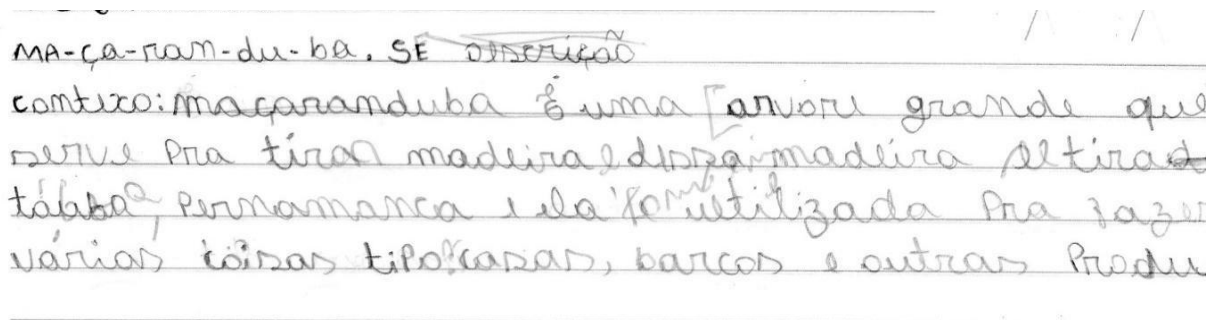 MA-ça-ran-du-ba. SE discrição
contexo: maçaranduba É uma arvore grande que
serve pra tirar madeira e dessa madeira se tira
tábba, pernamanca e ela utilizada pra fazer
várias coisas tipo: casas, barcos e outras produ